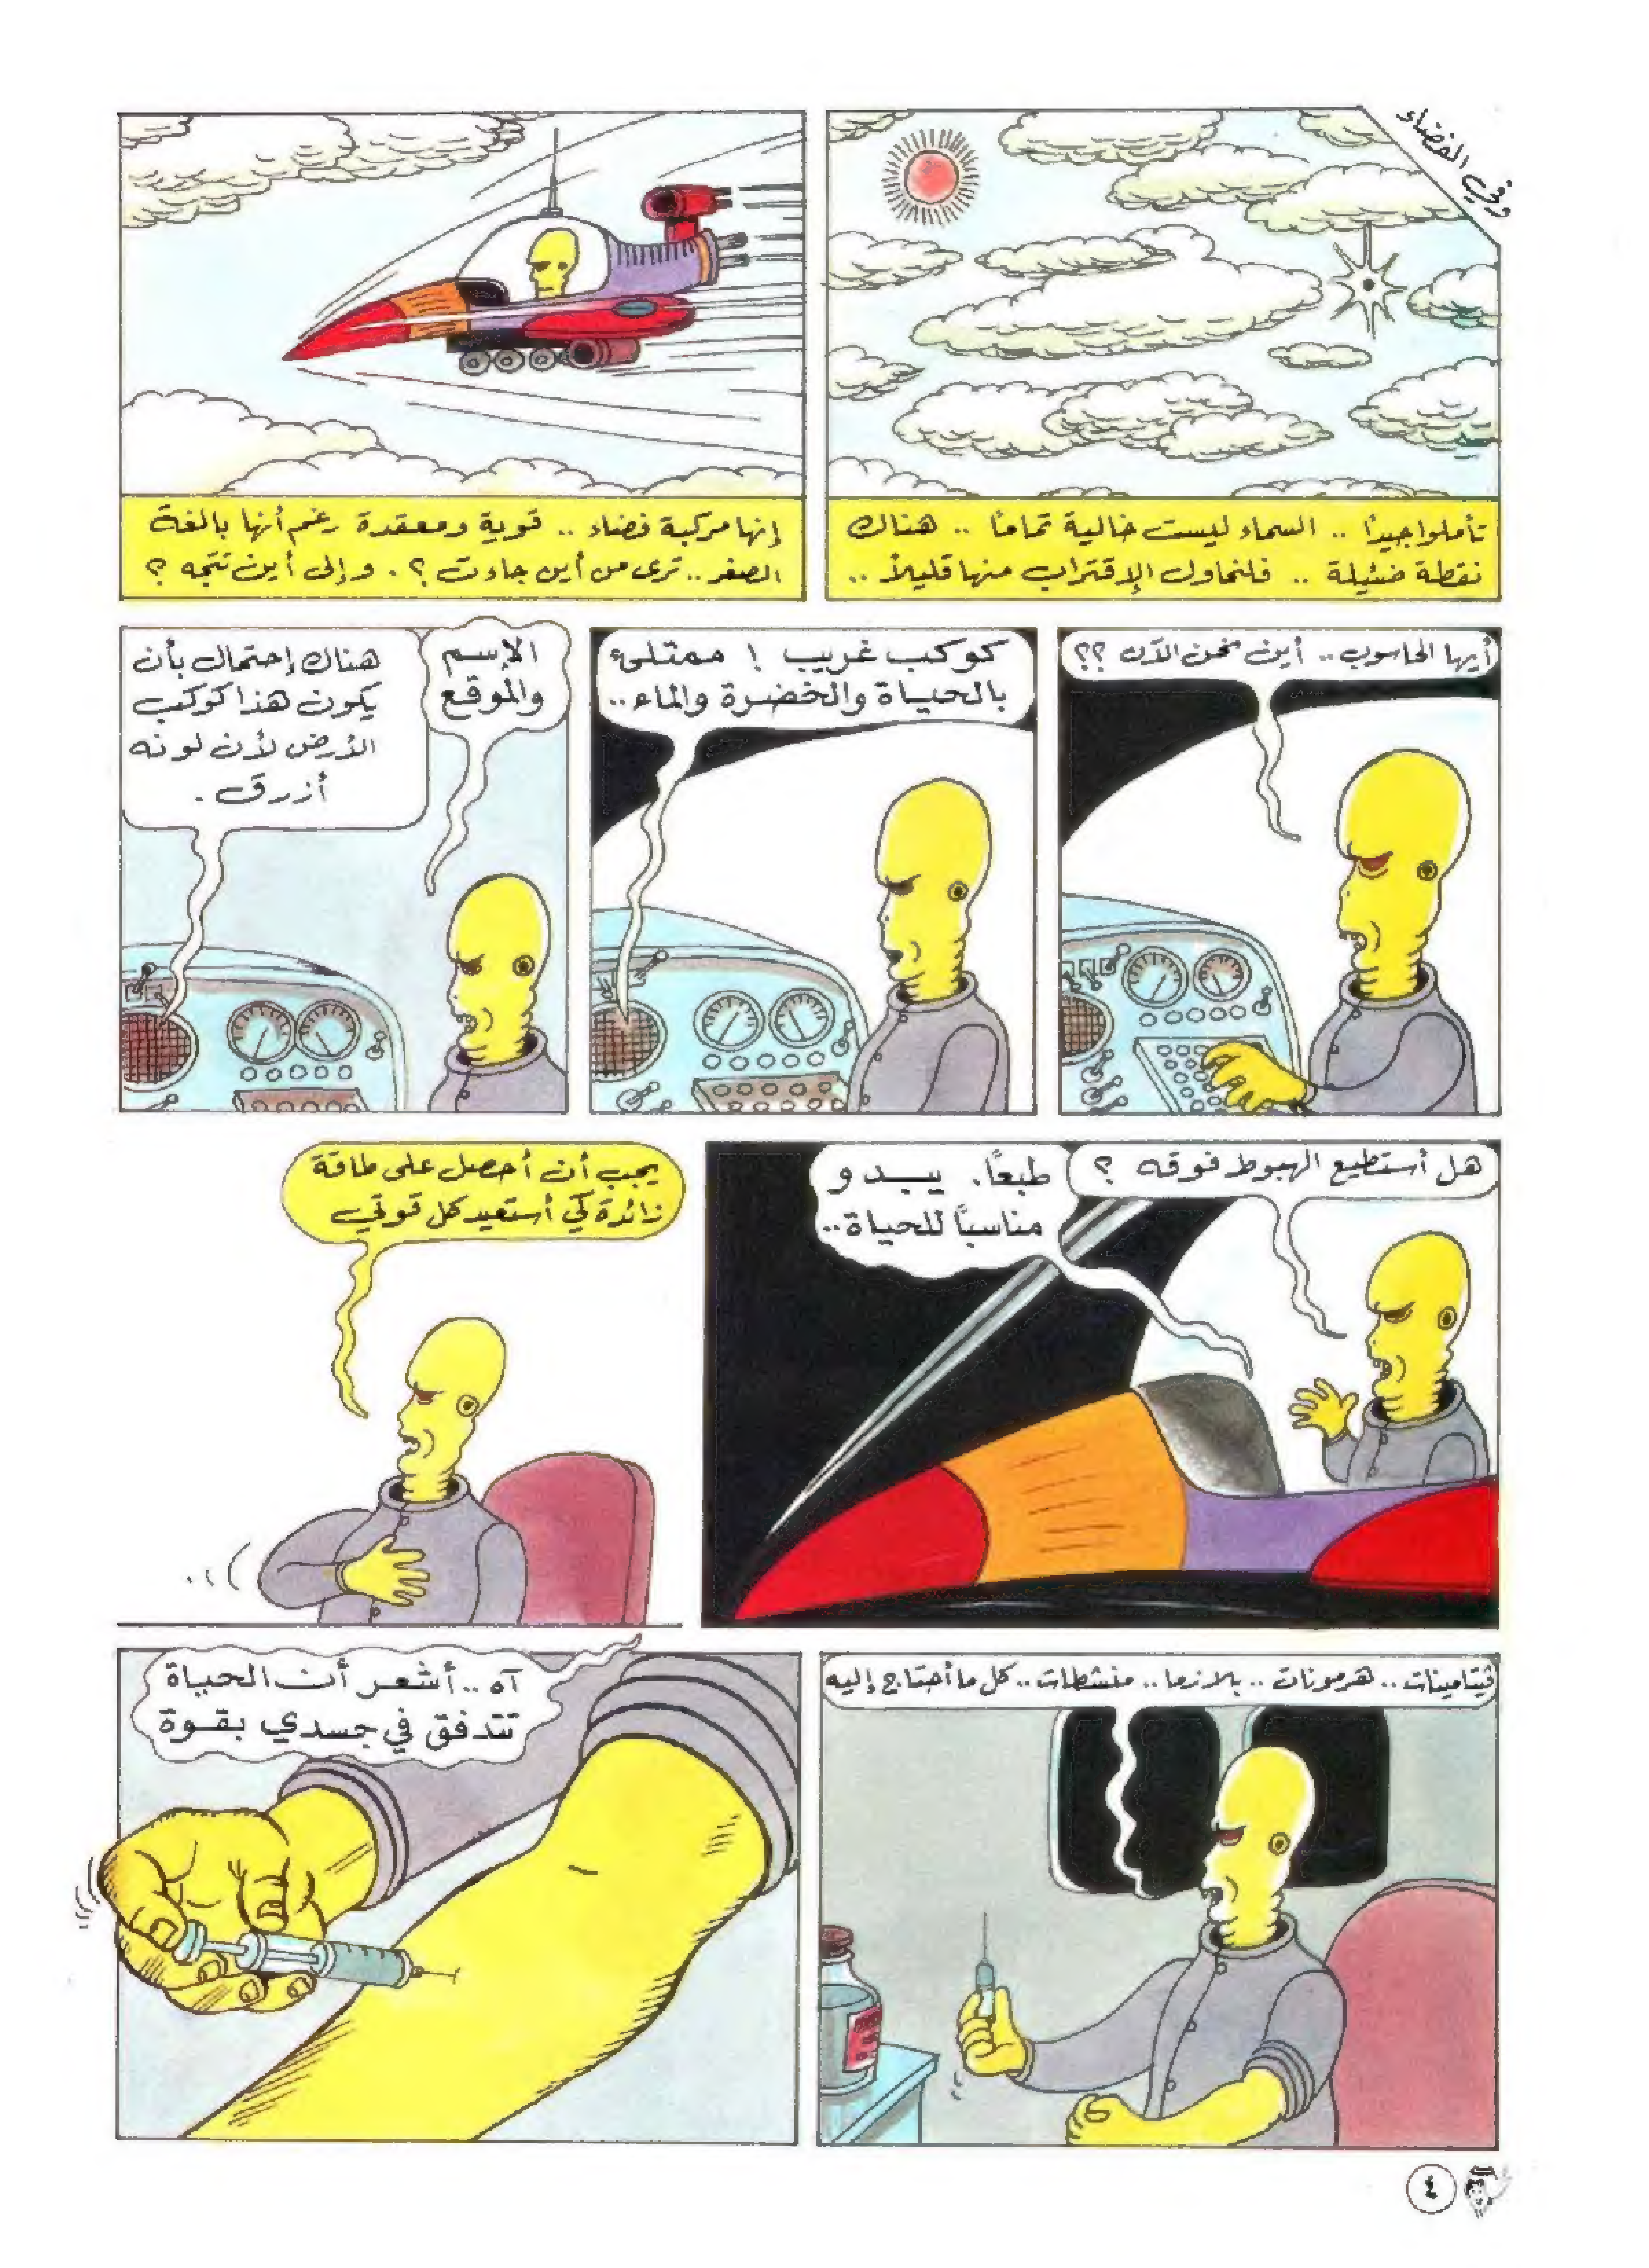 وفي الفضاء
تأملوا جيداً .. السماء ليست خالية تماماً .. هناك
نقطة ضئيلة .. فلنحاول الإقتراب منها قليلاً ..
إنها مركبة فضاء .. قوية ومعقدة رغم أنها بالغة
الصغر .. ترى من أين جاءت ؟ . وإلى أين تتجه ؟
أيها الحاسوب .. أين نحن الآن ؟؟
كوكب غريب ! ممتلئ
بالحياة والخضرة والماء ..
الإسم
والموقع
هناك إحتمال بأن
يكون هذا كوكب
الأرض لأن لونه
أزرق .
هل أستطيع الهبوط فوقه ؟
طبعاً . يبدو
مناسباً للحياة ..
يجب أن أحصل على طاقة
زائدة كي أستعيد كل قوتي
فيتامينات .. هرمونات .. بلازما .. منشطات .. كل ما أحتاج إليه
آه .. أشعر أن الحياة
تتدفق في جسدي بقوة
٤